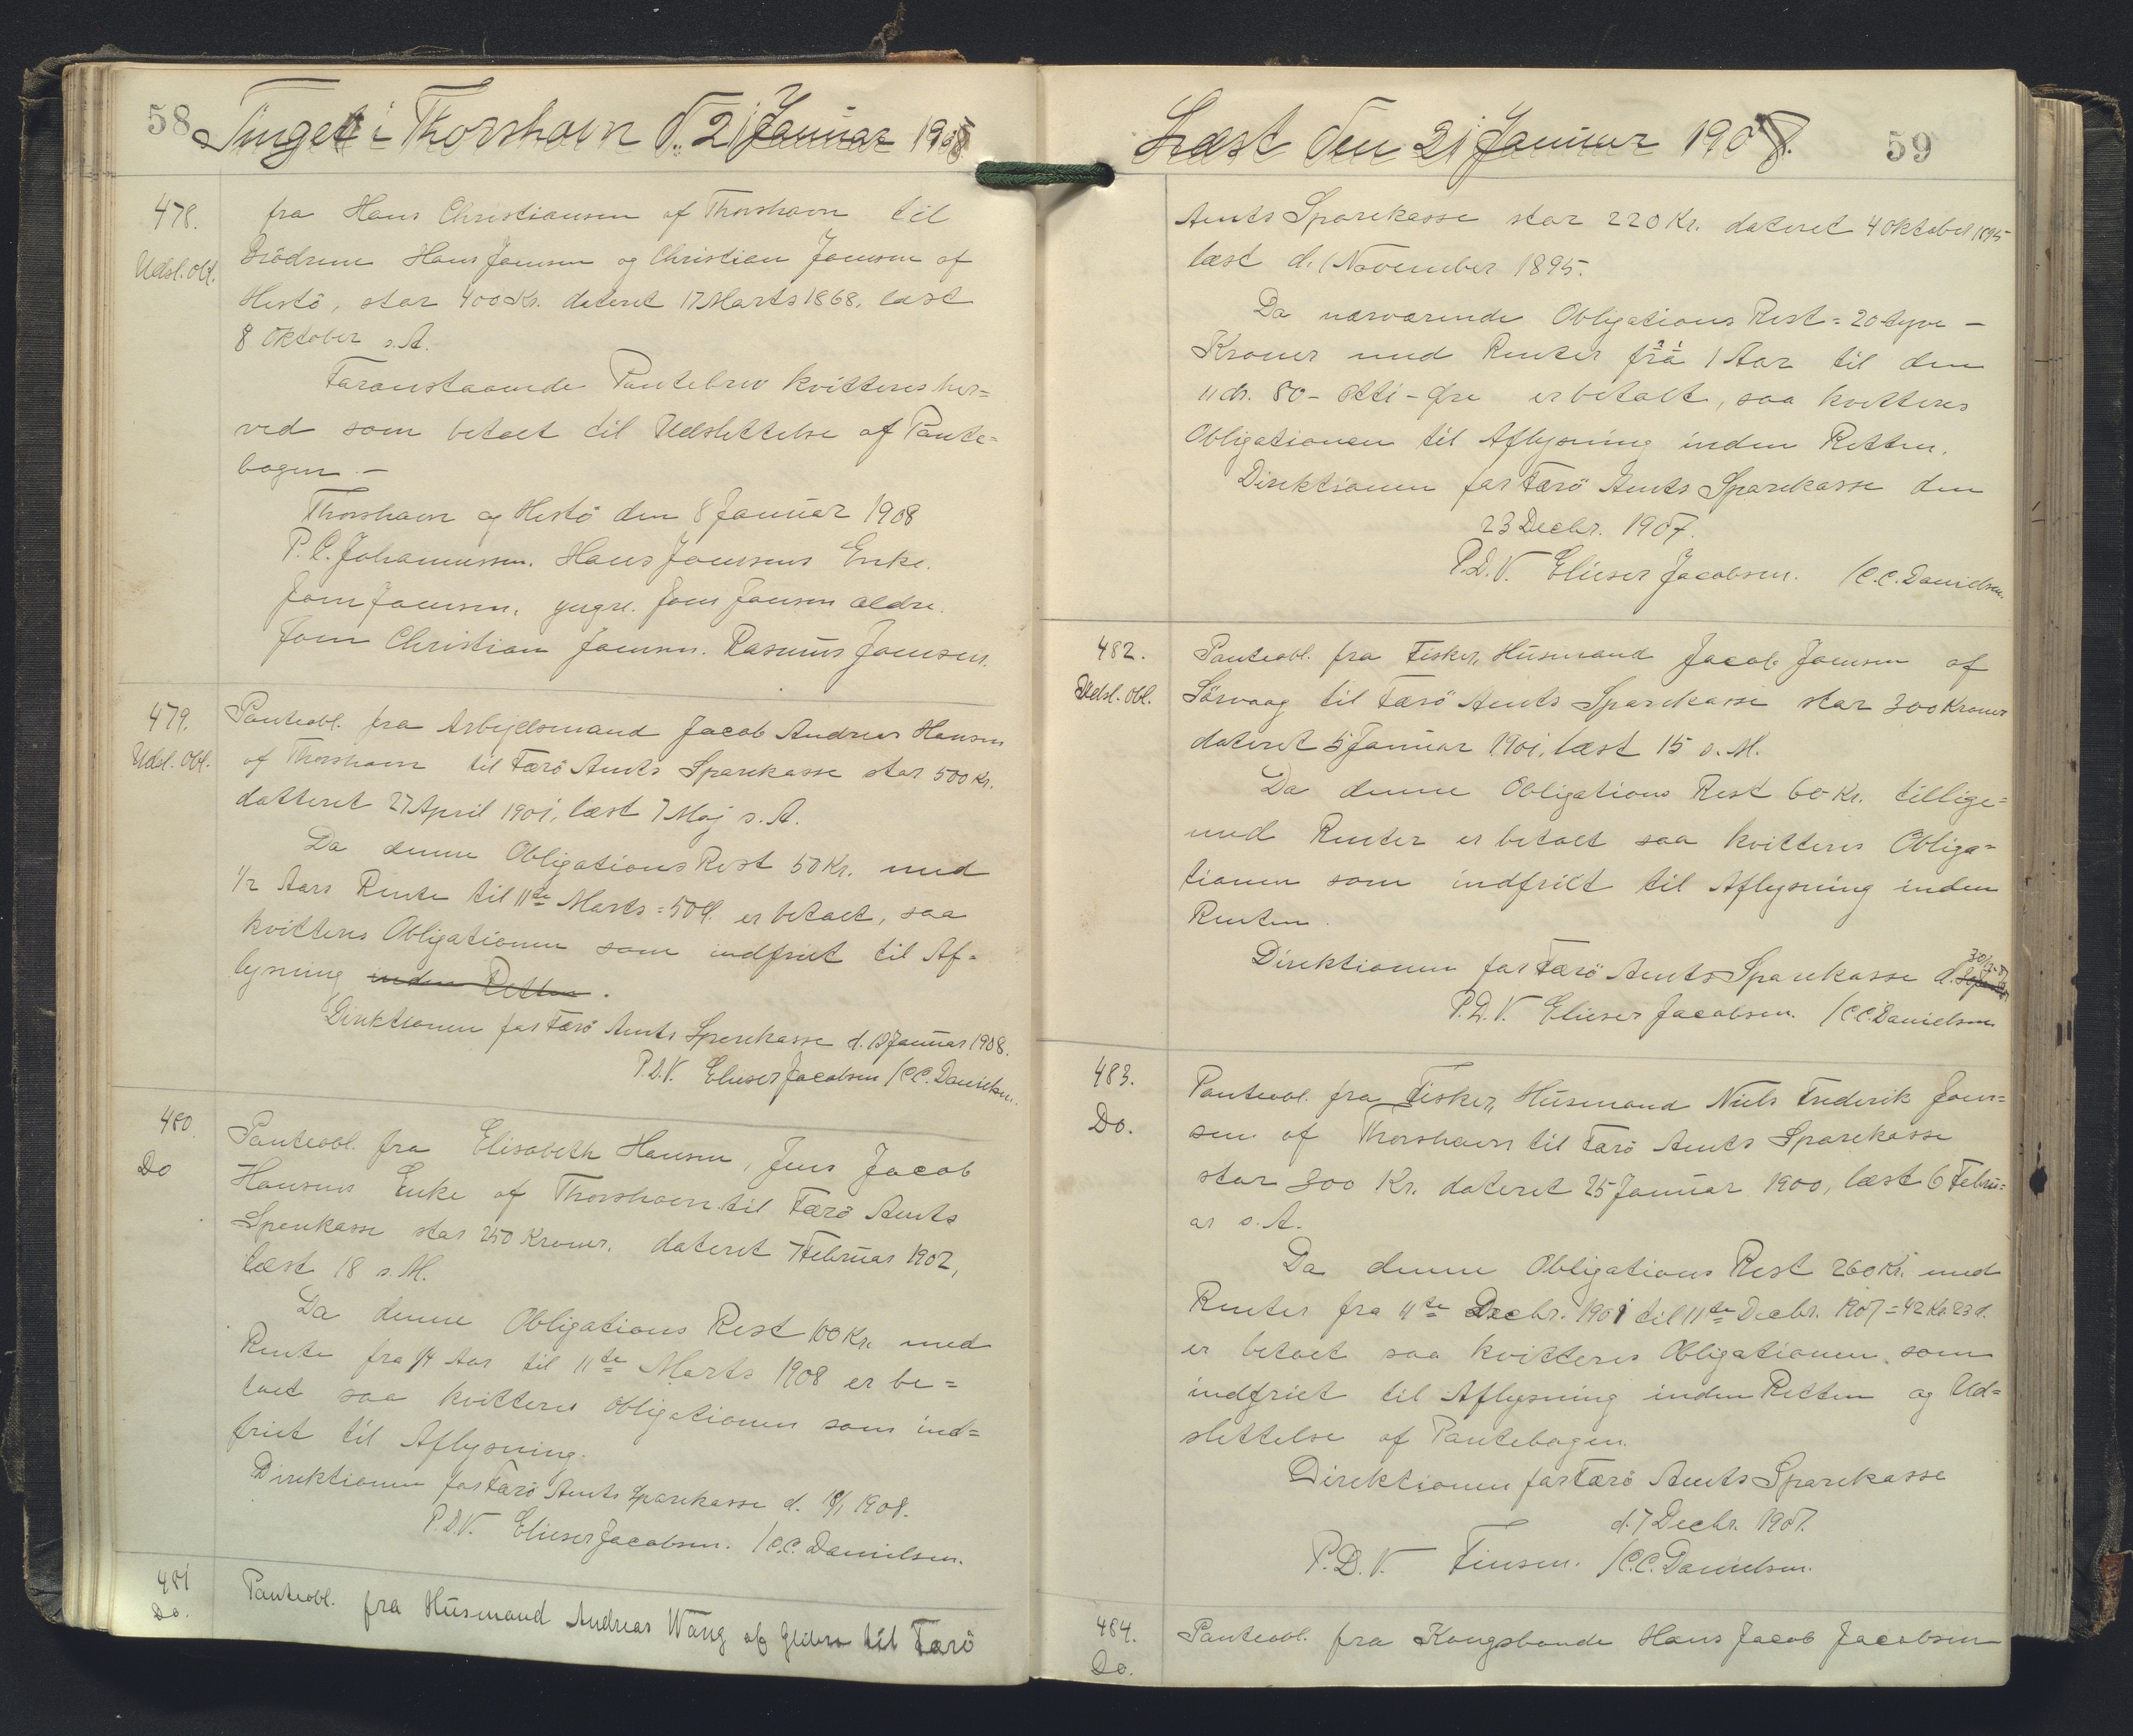 58
Tinget i Thorshavn d. 21 Januar 1908
478.
Udsl. Obl.
fra Hans Christiansen af Thorshavn til
Brödrene Hans Joensen og Christian Joensen af
Hestö, stor 400 Kr. dateret 17 Marts 1868, læst
8 Oktober s. A.
Foranstaaende Pantebrev kvitteres her=
ved som betalt til Udslettelse af Pante=
bogen. –
Thorshavn og Hestö den 8 Januar 1908
P. C. Johannessen. Hans Joensens Enke.
Joen Joensen, yngre. Joen Joensen ældre.
Joen Christian Joensen. Rasmus Joensen.
479.
Udsl. Obl.
Panteobl. fra Arbejdsmand Jacob Andreas Hansen
af Thorshavn til Færö Amts Sparekasse stor 500 Kr.
datteret 27 April 1901, læst 7 Maj s. A.
Da denne Obligations Rest 50 Kr. med
1/2 Aars Rente til 11te Marts = 50 Ø. er betalt, saa
kvitteres Obligationen som indfriet til Af=
lysning inden Retten.
Direktionen for Færö Amts Sparekasse d. 18 Januar 1908.
P.D.V. Elieser Jacobsen / C.C. Danielsen.
480.
Do
Panteobl. fra Elisabeth Hansen, Jens Jacob
Hansens Enke af Thorshavn til Færö Amts
Sparekasse stor 250 Kroner, dateret 7 Februar 1902,
læst 18 s. M.
Da denne Obligations Rest 100 Kr. med
Rente fra 1/4 Aar til 11te Marts 1908 er be=
talt saa kvitteres Obligationen som ind=
friet til Aflysning.
Direktionen for Færö Amts Sparekasse d. 18/1 1908.
P.D.V. Elieser Jacobsen. / C.C. Danielsen.
481
Do.
Panteobl. fra Husmand Andreas Wang af til Færö
Læst den 21 Januar 1908.
59
Amts Sparekasse stor 220 Kr. dateret 4 Oktober 1895
læst d. 1 November 1895.
Da nærværende Obligations Rest = 20 tyve –
Kroner med Renter fra 1 Aar til den
11 ds. 80 – otti – Øre er betalt, saa kvitteres
Obligationen til Aflysning inden Retten.
Direktionen for Færö Amts Sparekasse den
23 Decbr. 1907.
P.D.V. Elieser Jacobsen. / C.C. Danielsen.
482.
Udsl. Obl.
Panteobl. fra Fisker, Husmand Jacob Joensen af
Sörvaag til Færö Amts Sparekasse stor 300 Kroner
dateret 5 Januar 1901, læst 15 s. M.
Da denne Obligations Rest 60 Kr. tillige=
med Renter er betalt saa kvitteres Obliga=
tionen som indfriet til Aflysning inden
Retten.
Direktionen for Færö Amts Sparekasse d.
P.D.V. Elieser Jacobsen. / C.C. Danielsen
483.
Do.
Panteobl. fra Fisker, Husmand Niels Frederik Joen=
sen af Thorshavn til Færö Amts Sparekasse
stor 300 Kr. dateret 25 Januar 1900, læst 6 Febru=
ar s. A.
Da denne Obligations Rest 260 Kr. med
Renter fra 11te Decbr. 1901 til 11te Decbr. 1907 = 42 Kr. 23 Ø.
er betalt saa kvitteres Obligationen som
indfriet til Aflysning inden Retten og Ud=
slettelse af Pantebogen.
Direktionen for Færö Amts Sparekasse
d. 7 Decbr. 1907.
P.D.V. Finsen. / C.C. Danielsen.
484.
Do.
Panteobl. fra Kongsbonde Hans Jacob Jacobsen